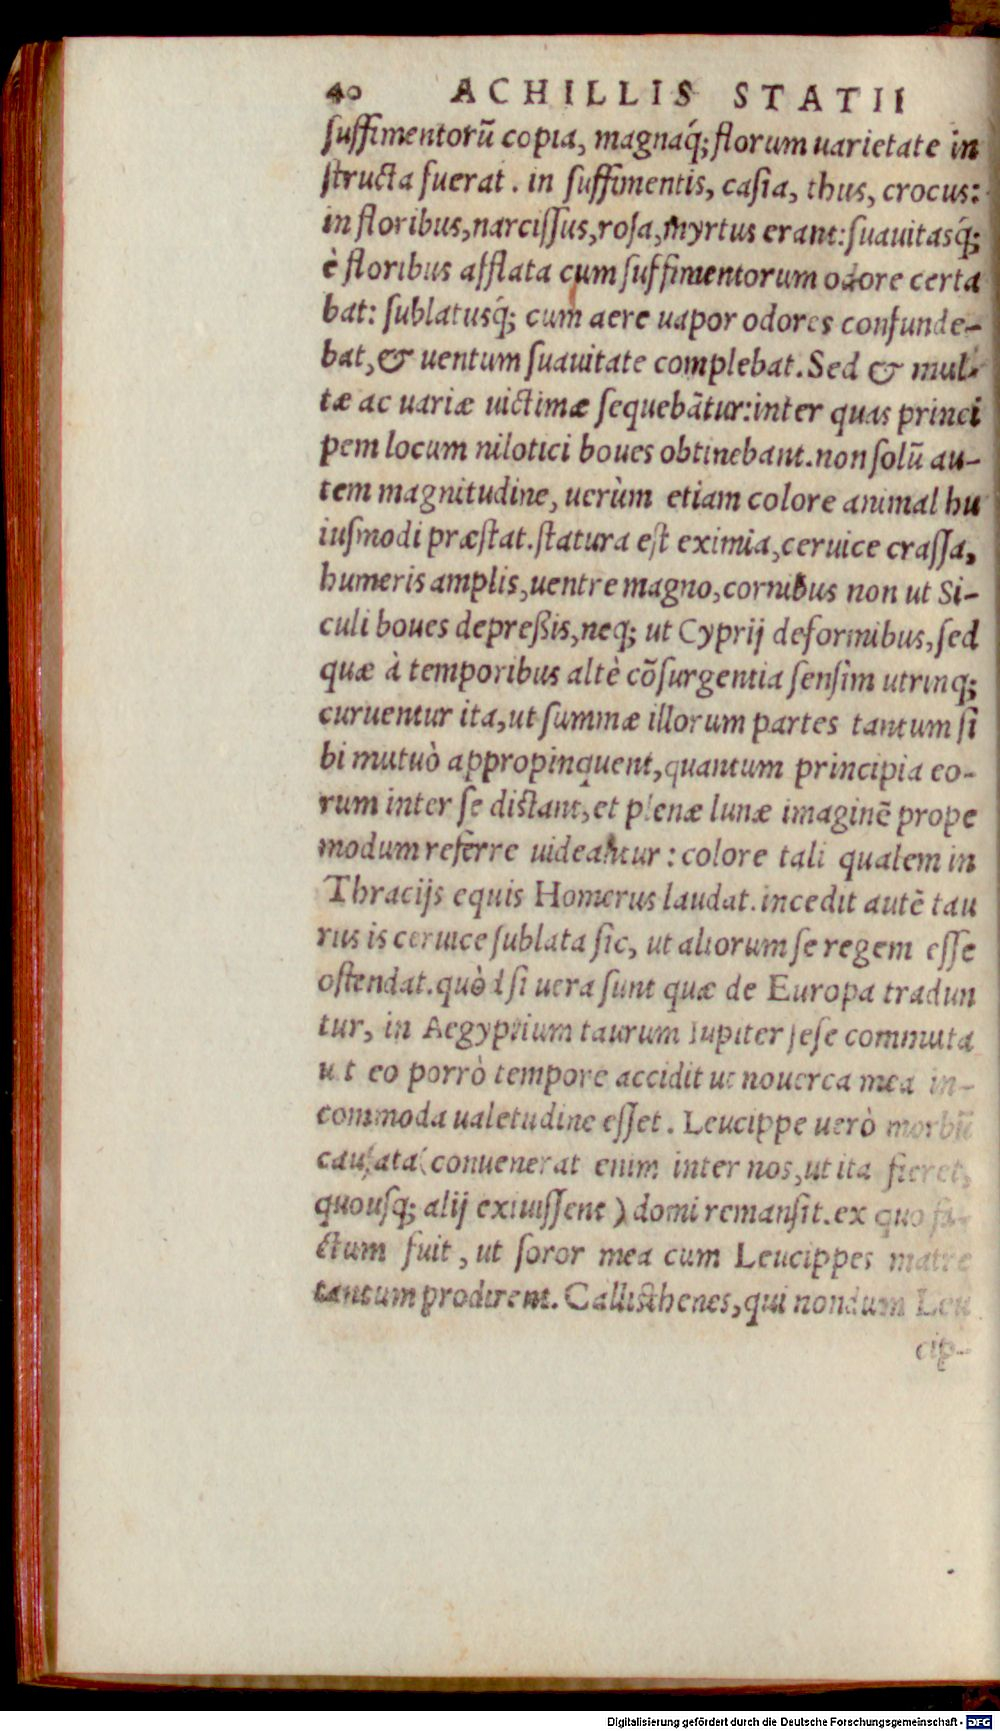 40 ACHILLIS STATII
ſuffimentorũ copia, magnaq́; florum uarietate in
ſtructa fuerat. in ſuffimentis, caſia, thus, crocus:
in floribus, narciſſus, roſa, myrtus erant: ſuauitasq́;
è floribus afflata cum ſuffimentorum odore certa
bat: ſublatusq́; cum aere uapor odores confunde-
bat, & uentum ſuauitate complebat. Sed & mul-
tæ ac uariæ uictimæ ſequebãtur: inter quas princi
pem locum nilotici boues obtinebant. non ſolũ au-
tem magnitudine, uerùm etiam colore animal hu
iuſmodi præſtat. ſtatura eſt eximia, ceruice craſſa,
humeris amplis, uentre magno, cornibus non ut Si-
culi boues depreßis, neq; ut Cyprij deformibus, ſed
quæ à temporibus altè cõſurgentia ſenſim utrinq;
curuentur ita, ut ſummæ illorum partes tantum ſi
bi mutuò appropinquent, quantum principia eo-
rum inter ſe diſtant, et plenæ lunæ imaginẽ prope
modum referre uideantur: colore tali qualem in
Thracijs equis Homerus laudat. incedit autẽ tau
rus is ceruice ſublata ſic, ut aliorum ſe regem eſſe
oſtendat. quòd ſi uera ſunt quæ de Europa tradun
tur, in Aegyptium taurum Iupiter ſeſe commuta
uit eo porrò tempore accidit ut nouerca mea in-
commoda ualetudine eſſet. Leucippe uerò morbũ
cauſata (conuenerat enim inter nos, ut ita fieret,
quouſq; alij exiuiſſent) domi remanſit. ex quo fa-
ctum fuit, ut ſoror mea cum Leucippes matre
tantum prodirent. Calliſthenes, qui nondum Leu
cip-
Digitalisierung gefördert durch die Deutsche Forschungsgemeinschaft - DFG